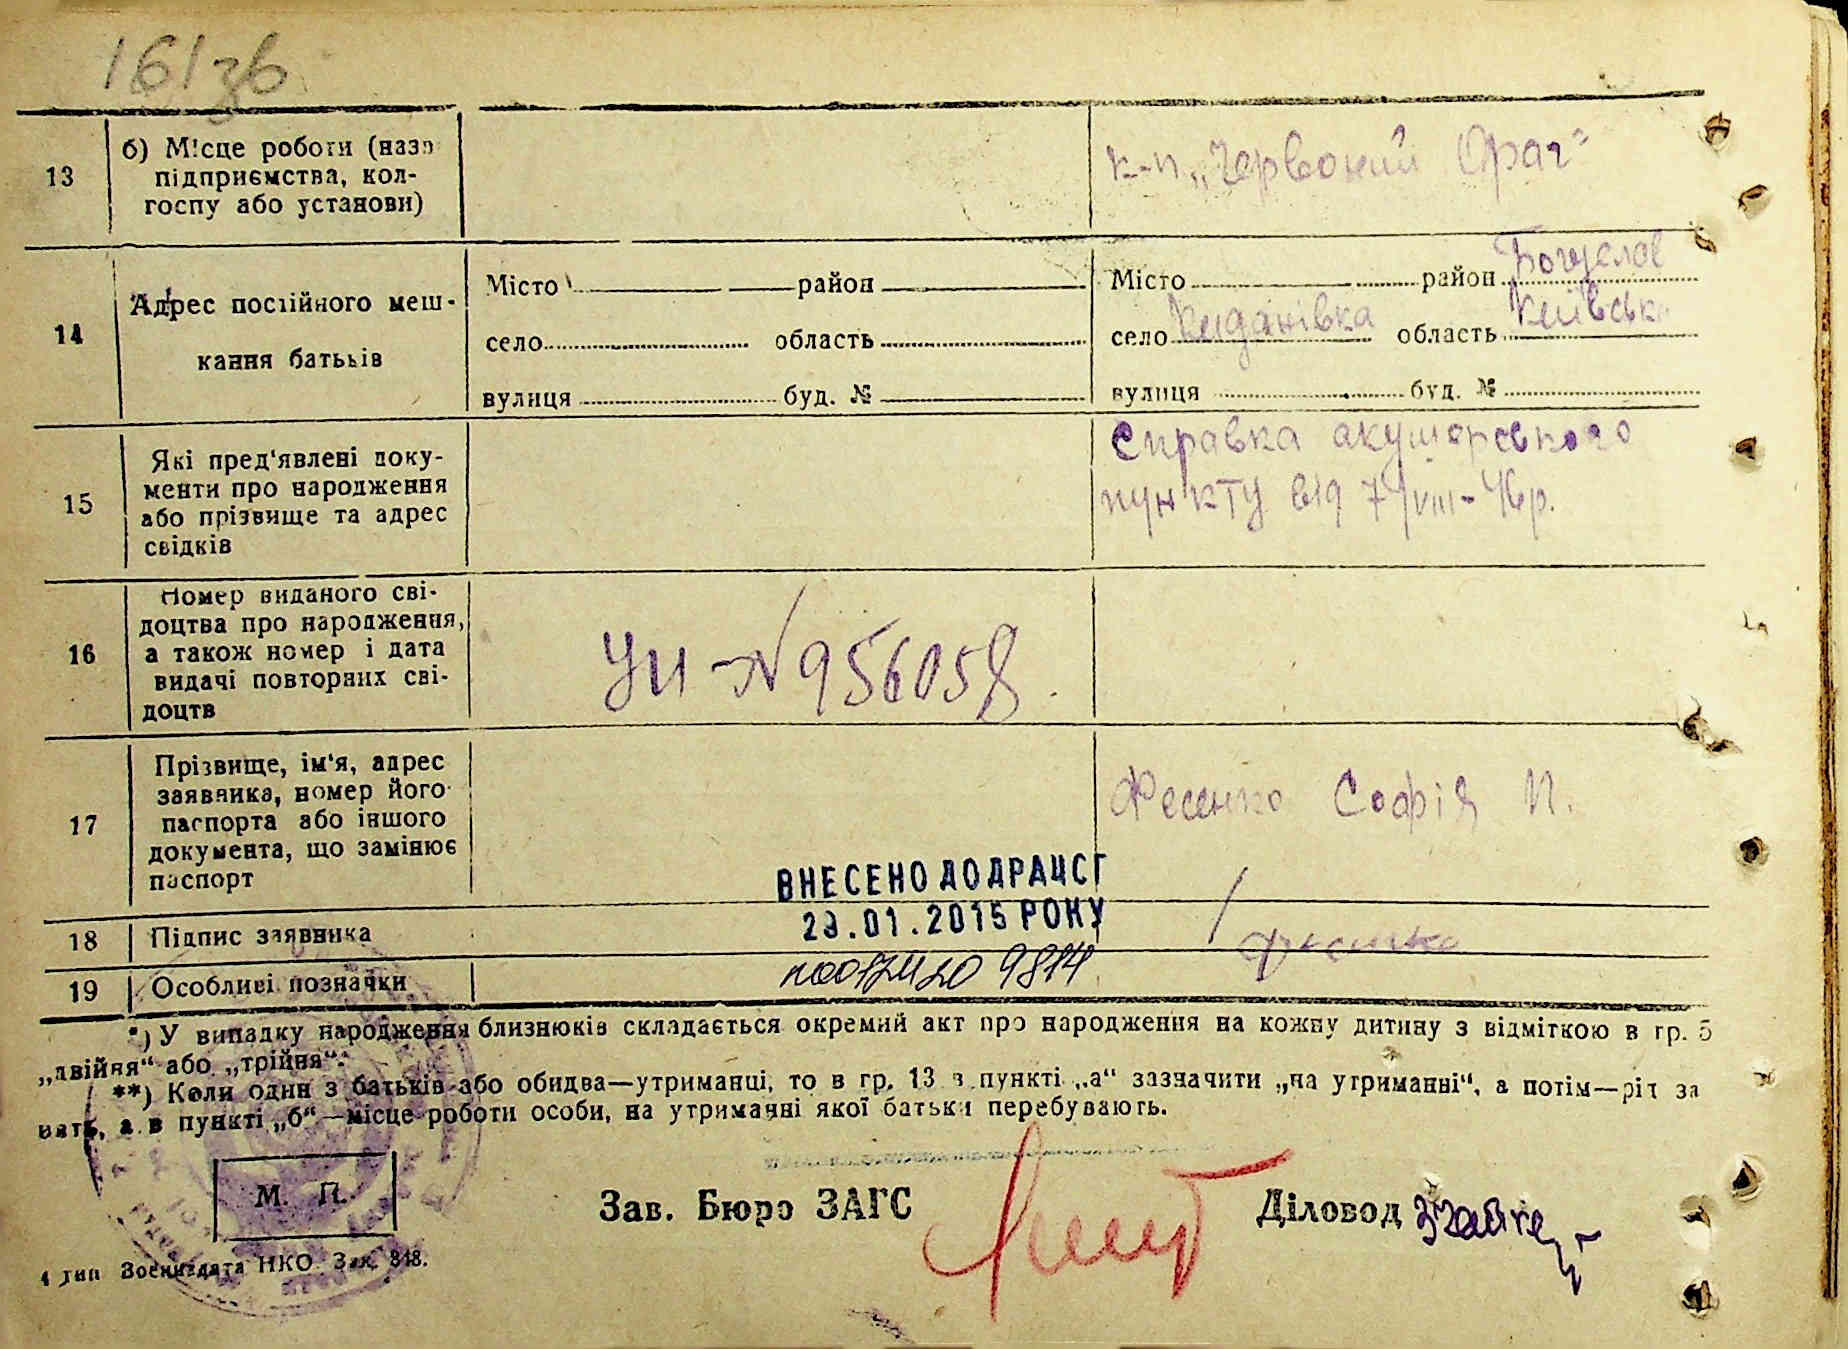 161зв
13
б) Місце роботи (назв
підприємства, кол-
госпу або установи)
к-п „Червоний Орач"
14
Адрес постійного меш-
кання батьків
Місто район
село область
вулиця буд. №
Місто район Богуслав
село Киданівка область Київськ
вулиця буд. №
15
Які пред'явлені доку-
менти про народження
або прізвище та адрес
свідків
Справка акушорського
пункту від 7/VIII-46р.
16
Номер виданого сві-
доцтва про народження,
а також номер і дата
видачі повторних сві-
доцтв
УИ-№956058.
17
Прізвище, ім'я, адрес
заявника, номер його
паспорта або іншого
документа, що замінює
паспорт
Фесенко Софія П.
ВНЕСЕНО ДО ДРАЦСГ
18
Підпис заявника
.01.2015 РОКУ
Фесенко
19
Особливі позначки
9814
*) У випадку народження близнюків складається окремий акт про народження на кожну дитину з відміткою в гр. 5
„двійня" або „трійня".
**) Коли один з батьків або обидва—утриманці, то в гр. 13 в пункті „а" зазначити „на утриманні", а потім—рід за
нять, а в пункті „б"—місце роботи особи, на утриманні якої батьки перебувають.
М. П.
Зав. Бюро ЗАГС
Діловод
4 тип Воениздата НКО Зак. 848.